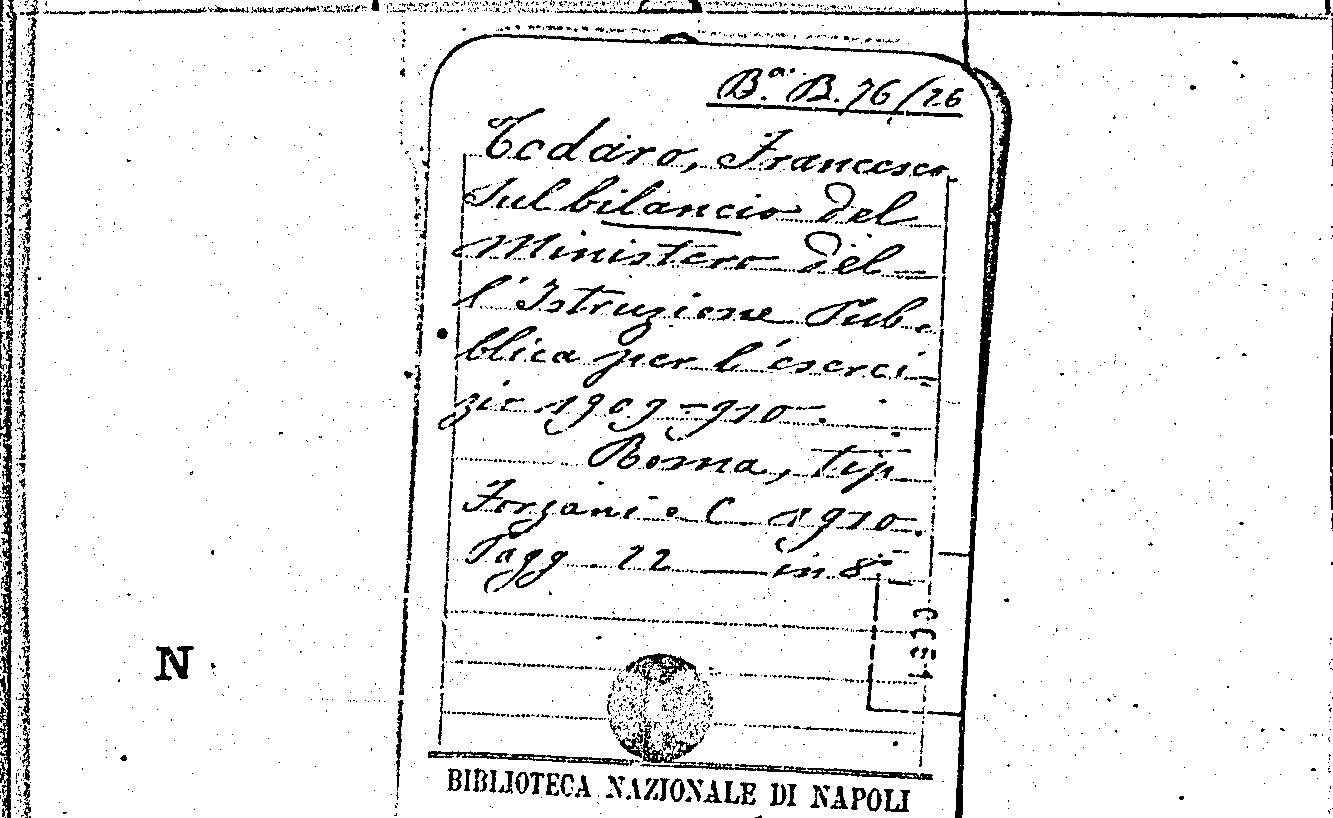 B.ᵃ B. 76/26
Todaro, Francesco.
Sul bilancio del
Ministero del-
l'Istruzione Pub-
blica per l'eserci-
zio 1909-910.
Roma, tip.
Forzani e C. 1910.
Pagg. 22 — in 8°
N
BIBLIOTECA NAZIONALE DI NAPOLI